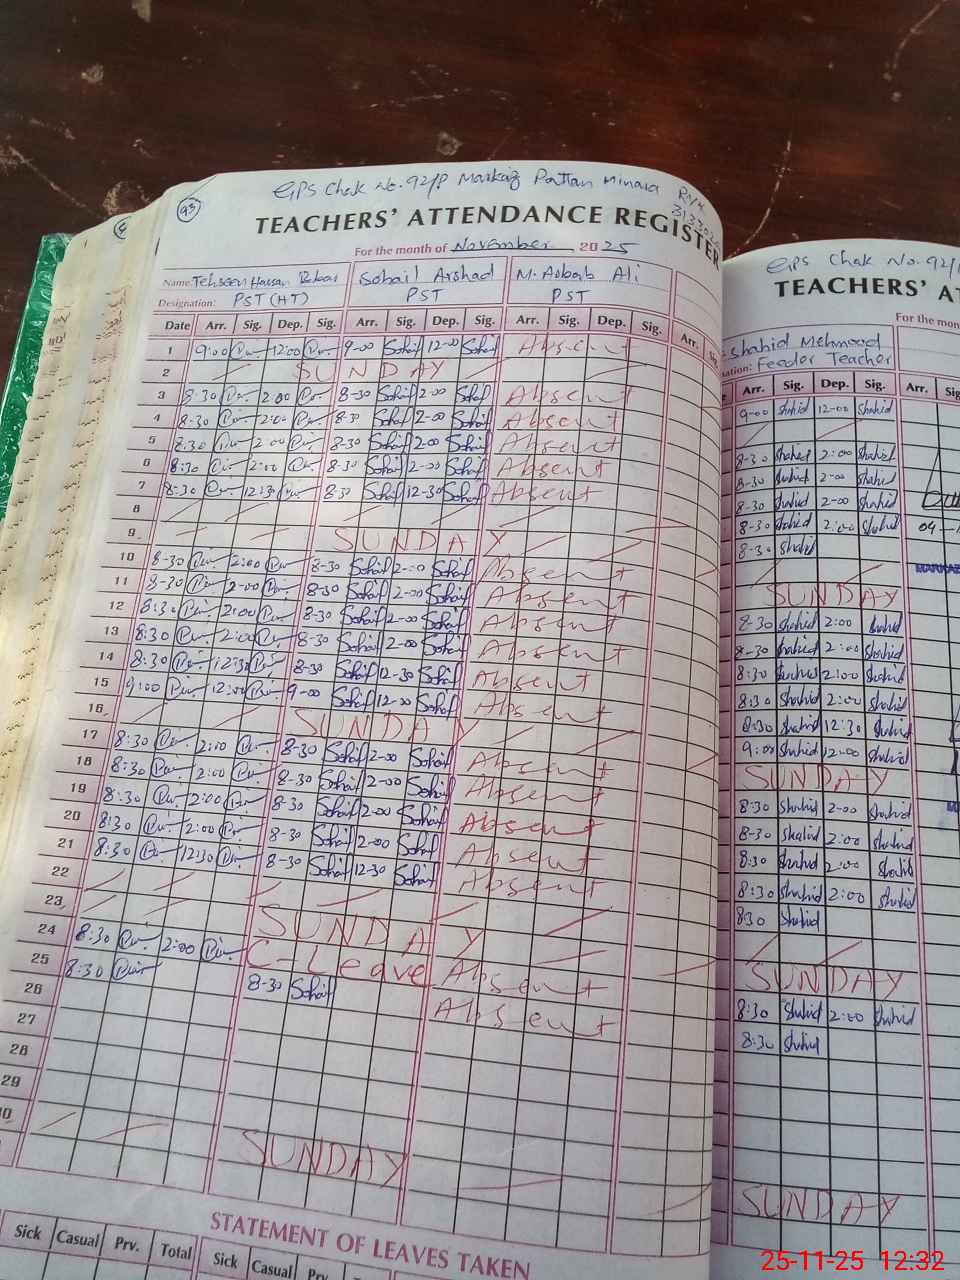 93
GPS Chak No. 92/P Markaz Pattan Minara RYK
TEACHERS' ATTENDANCE REGISTER
For the month of November 2025
Name: Tehseen Hassan Babar Sohail Arshad M. Arbab Ali
Designation: PST (HT) PST PST
Date Arr. Sig. Dep. Sig. Arr. Sig. Dep. Sig. Arr. Sig. Dep. Sig. Arr.
1 9:00 12:00 9-00 Sohail 12-00 Sohail Absent
2 SUNDAY
3 8:30 2:00 8-30 Sohail 2-00 Sohail Absent
4 8:30 2:00 8-30 Sohail 2-00 Sohail Absent
5 8:30 2:00 8-30 Sohail 2-00 Sohail Absent
6 8:30 2:00 8-30 Sohail 2-00 Sohail Absent
7 8:30 12:30 8-30 Sohail 12-30 Sohail Absent
8
9 SUNDAY
10 8-30 2:00 8-30 Sohail 2-00 Sohail Absent
11 8-30 2:00 8-30 Sohail 2-00 Sohail Absent
12 8:30 2:00 8-30 Sohail 2-00 Sohail Absent
13 8:30 2:00 8-30 Sohail 2-00 Sohail Absent
14 8:30 12:30 8-30 Sohail 12-30 Sohail Absent
15 9:00 12:00 9-00 Sohail 12-00 Sohail Absent
16 SUNDAY
17 8:30 2:00 8-30 Sohail 2-00 Sohail Absent
18 8:30 2:00 8-30 Sohail 2-00 Sohail Absent
19 8:30 2:00 8-30 Sohail 2-00 Sohail Absent
20 8:30 2:00 8-30 Sohail 2-00 Sohail Absent
21 8:30 12:30 8-30 Sohail 12-30 Sohail Absent
22
23 SUNDAY
24 8:30 2:00 C-Leave Absent
25 8:30 8-30 Sohail Absent
26
27
28
29
30 SUNDAY
STATEMENT OF LEAVES TAKEN
Sick Casual Prv. Total Sick Casual
GPS Chak No. 92/P
TEACHERS' AT
For the mon
Shahid Mehmood
Feeder Teacher
Arr. Sig. Dep. Sig. Arr.
9-00 Shahid 12-00 Shahid
8-30 Shahid 2:00 Shahid
8-30 Shahid 2-00 Shahid
8-30 Shahid 2-00 Shahid
8-30 Shahid 2:00 Shahid
8-30 Shahid
SUNDAY
8-30 Shahid 2:00 Shahid
8-30 Shahid 2:00 Shahid
8:30 Shahid 2:00 Shahid
8:30 Shahid 2:00 Shahid
8:30 Shahid 12:30 Shahid
9:00 Shahid 12:00 Shahid
SUNDAY
8:30 Shahid 2-00 Shahid
8-30 Shahid 2:00 Shahid
8:30 Shahid 2:00 Shahid
8:30 Shahid 2:00 Shahid
8:30 Shahid
SUNDAY
8:30 Shahid 2:00 Shahid
8:30 Shahid
SUNDAY
25-11-25 12:32